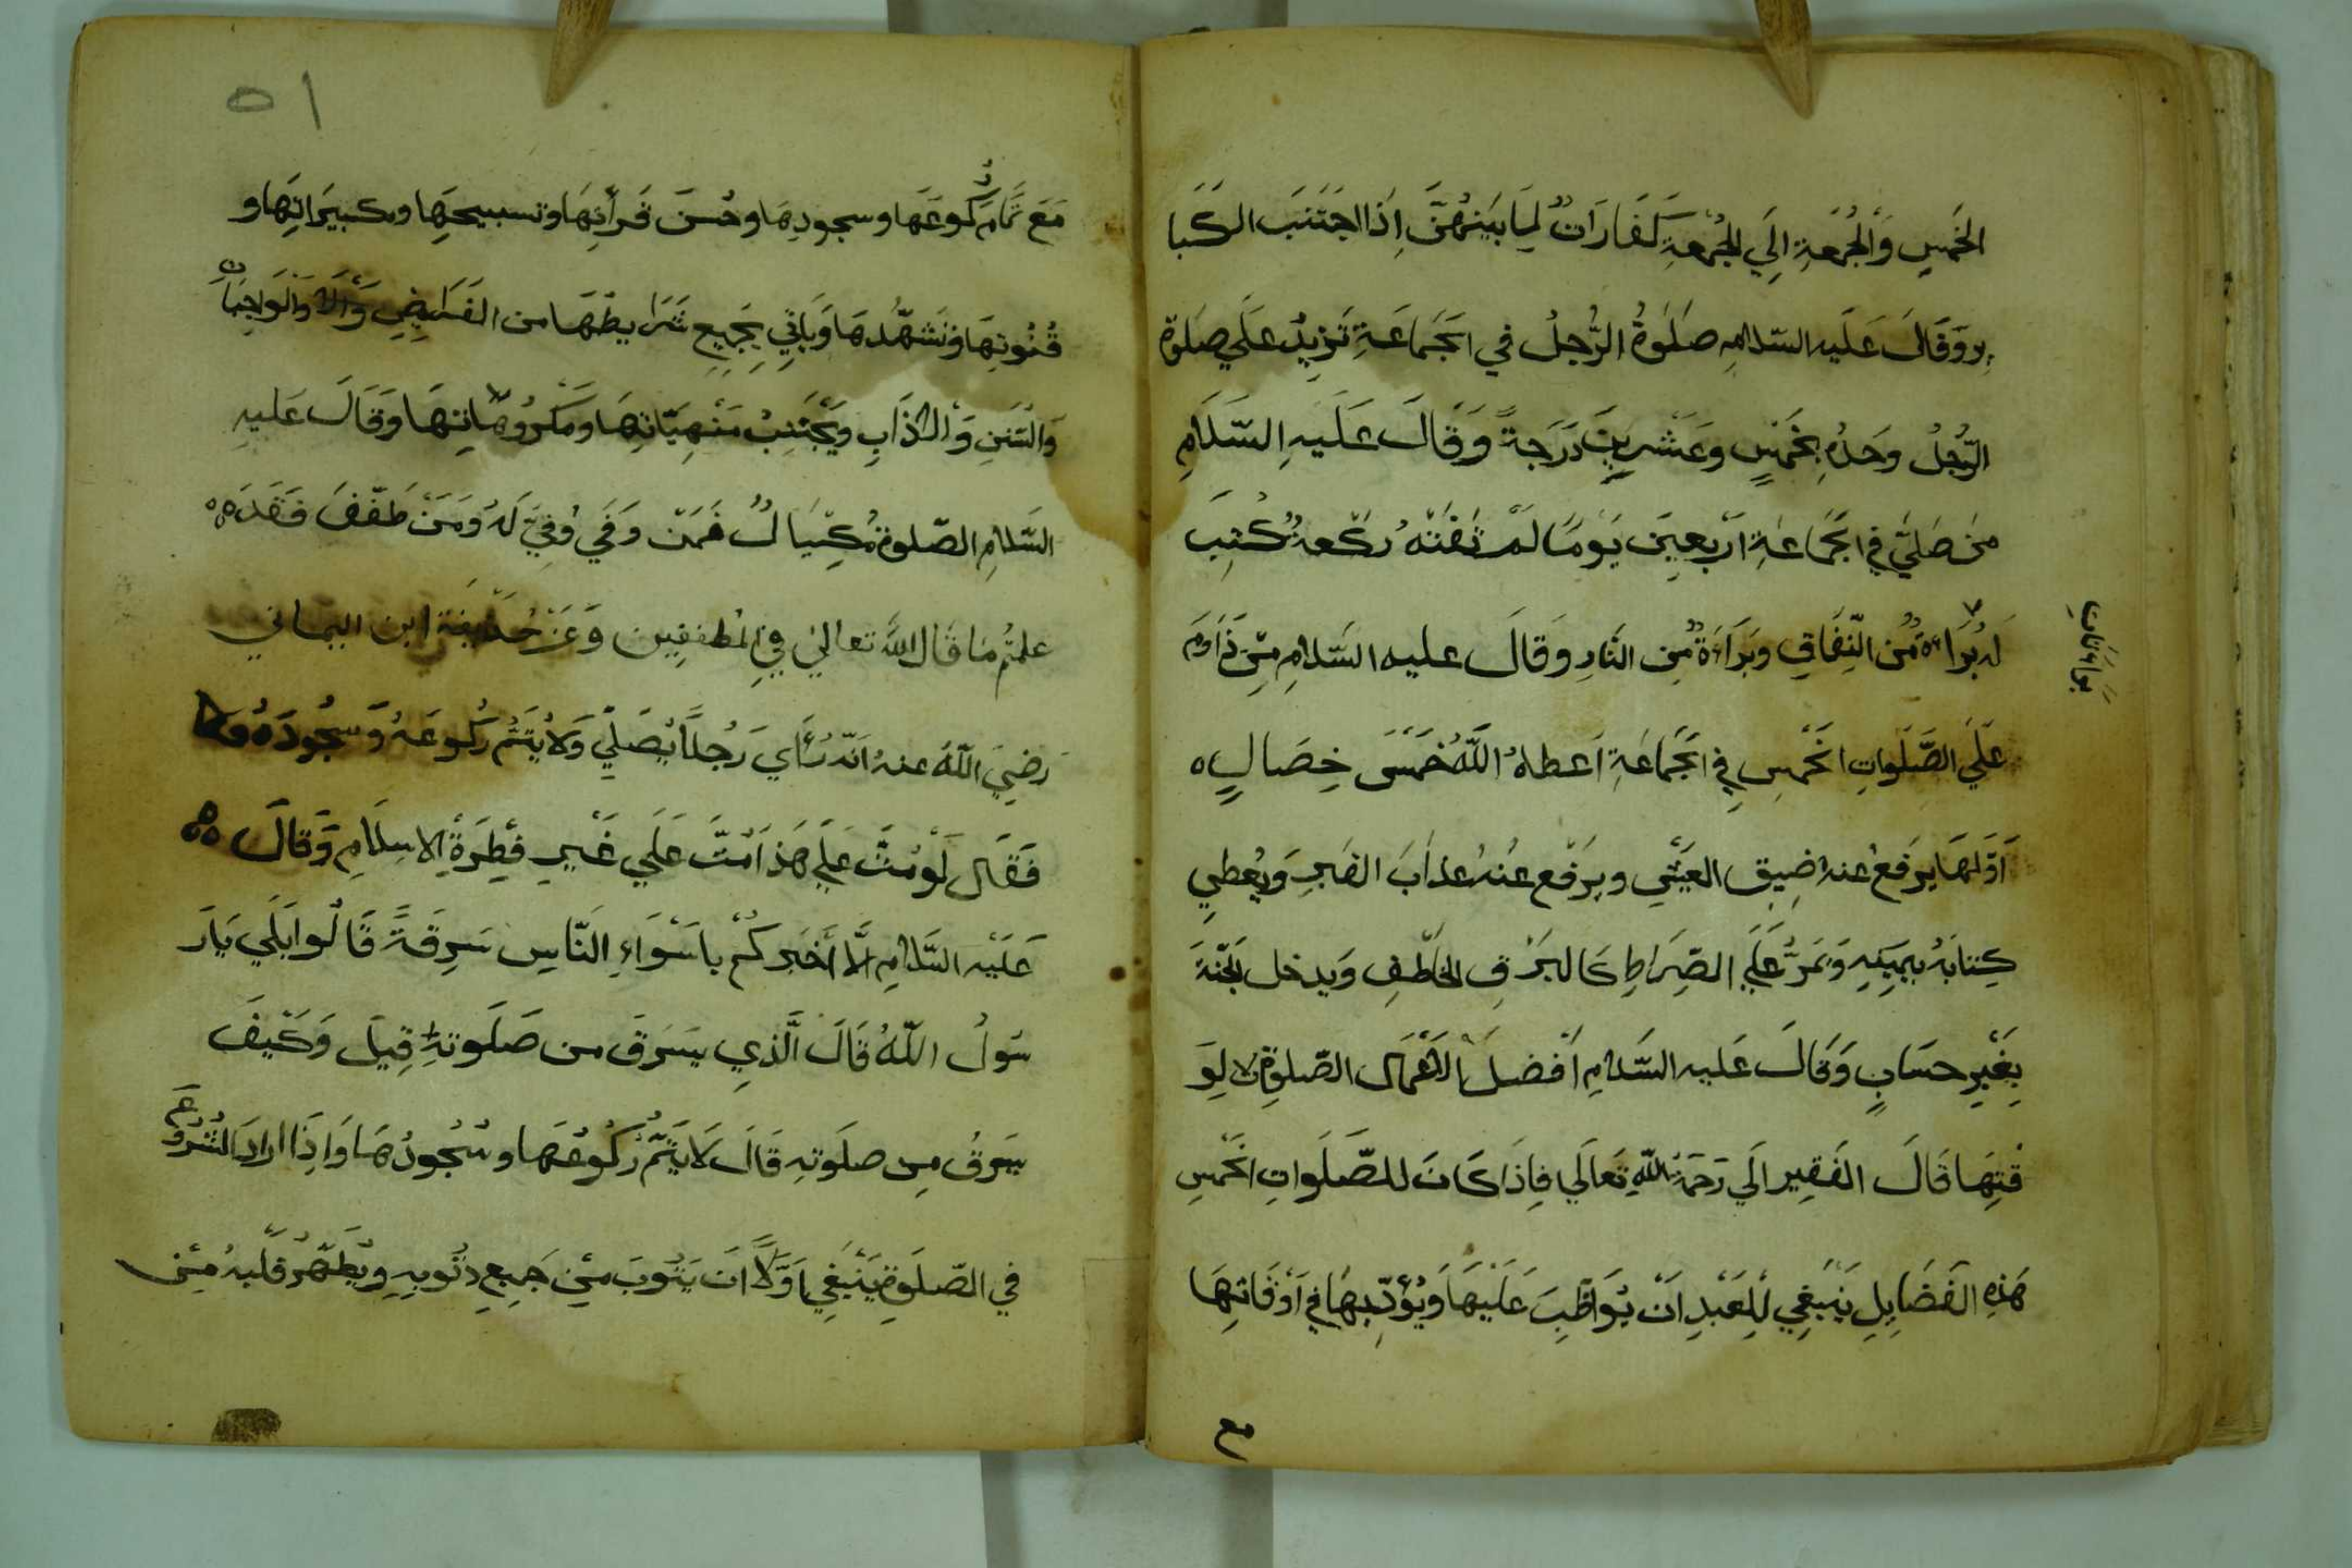 الخَمسِ وَالجُمعَةِ اِلَي الجُمعَةِ كَفَارَاتٌ لِمَا بَينَهُنَّ اِذَا اجتَنَبَ الكَبَا
يِر وَقَالَ عَلَيه السّلامِ صَلَوةُ الرَّجلُ في الجَمَاعَةِ تَزِيدُ عَلَي صَلوة
الرَّجُلُ وَحدُهِ بِخَمسٍ وَعَشرِينَ دَرَجَةً وَقَالَ عَلَيهِ السَّلَامِ
مَن صَلَيَّ فِي الجَمَاعَةِ اَربَعِينَ يَومًا لَمْ تَفُتْهُ رَكعةٌ كُتِبَ
لَه بُرَاءةٌ مُن النِّفَاقِ وَبَرَاءَةٌ مِن النَّارِ وَقَالَ عليه السَّلامِ مَن دَاوَمَ
براءتان
عَلَي الصَّلَواتِ الخَمسِ فِي الجَمَاعَةِ اَعطاهُ اللَّهُ خَمسَ خِصَالٍ ه
اَوَّلهَا يَرفَعُ عَنهُ ضِيقِ العَيشِ ويَرفَع عَنهُ عذابَ القبرِ وَيُعطِي
كِتَابَهُ بيَمِينِهِ وَيَمَرُّ عَلَي الصِّرَاطِ كَالبَرقِ الخَاطِفِ وَيدخل الجَنّةَ
بِغَيرِ حسَابٍ وَقَالَ عَليه السَّلامِ اَفضلُ الاَعْمَال الصّلوة لاِوَ
قتِهَا قَالَ الفَقِير الَي رَحمَةُ اللّهِ تَعَالَي فَاِذَا كَانَ للصَّلَواتِ الخَمسِ
هَذِهِ الفَضَايِلِ يَنبَغِي لِلعَبدِ اَنْ يُوَاظِبَ عَلَيْهَا وَيُؤَدِّيهَا فِي اَوقَاتِهَا
مع
٥١
مَعَ تَمَام رُكُوعَهَا وسجودِهَا وحُسنَ قَرأَتِهَا وتسبيحِهَا وتكبيرَاتِهَا و
قُنُوتِهَا وتَشَهُّدهَا وَبَاقِي بِجَمِيعِ شَرَايطِهَا من الفَرَايِضِ وَالوَاجِبَات
وَالسُنَنِ وَالاذَابِ وَيَجْتَنِبُ مَنْهِيَّاتِهَا وَمَكرُوهَاتِهَا وَقَالَ عَلَيهِ
السَّلامِ الصّلوة مُكِيَالٌ فَمَن وَفَي وُفِيَّ لَهُ وَمَن طَفَّفَ فَقَد
علمتُم مَا قَال اللَّهُ تعالي فِي المُطففِين وَعَن حُذَيفَة ابن اليماني
رَضِيَ اللَّهُ عنهُ اَنّه رَأَي رَجُلاً يُصَلِّي وَلَا يُتَمُّ رُكُوعَهُ وَسجُودَهُ
فَقَال لَوْ مُتَّ عَلَي هَذَا مُتَّ عَلَي غَيرِ فِطرَةِ الاِسلَامِ وَقَالَ
عَلَيْه السَّلامِ اَلَا اَخبَركُمْ باَسْوَاءِ النَّاسِ سَرِقَةً قَالُوا بَلَي يَارَ
سُولُ اللَّهُ قَالَ الَّذِي يَسرَقَ من صَلَوتهِ قِيلَ وَكَيفَ
يَسرقُ مِن صلَوتهِ قَالَ لَا يَتِمُّ رُكُوعُهَا وسُجُودُهَا وَاِذَا ارادَ الشُرُوعَ
في الصّلَوةِ يَنْبَغِي اَوَّلًا اَن يَتُوبَ مِن جَمِيعِ ذنُوبِهِ وَيُطَهِّرُ قَلبهُ مِن